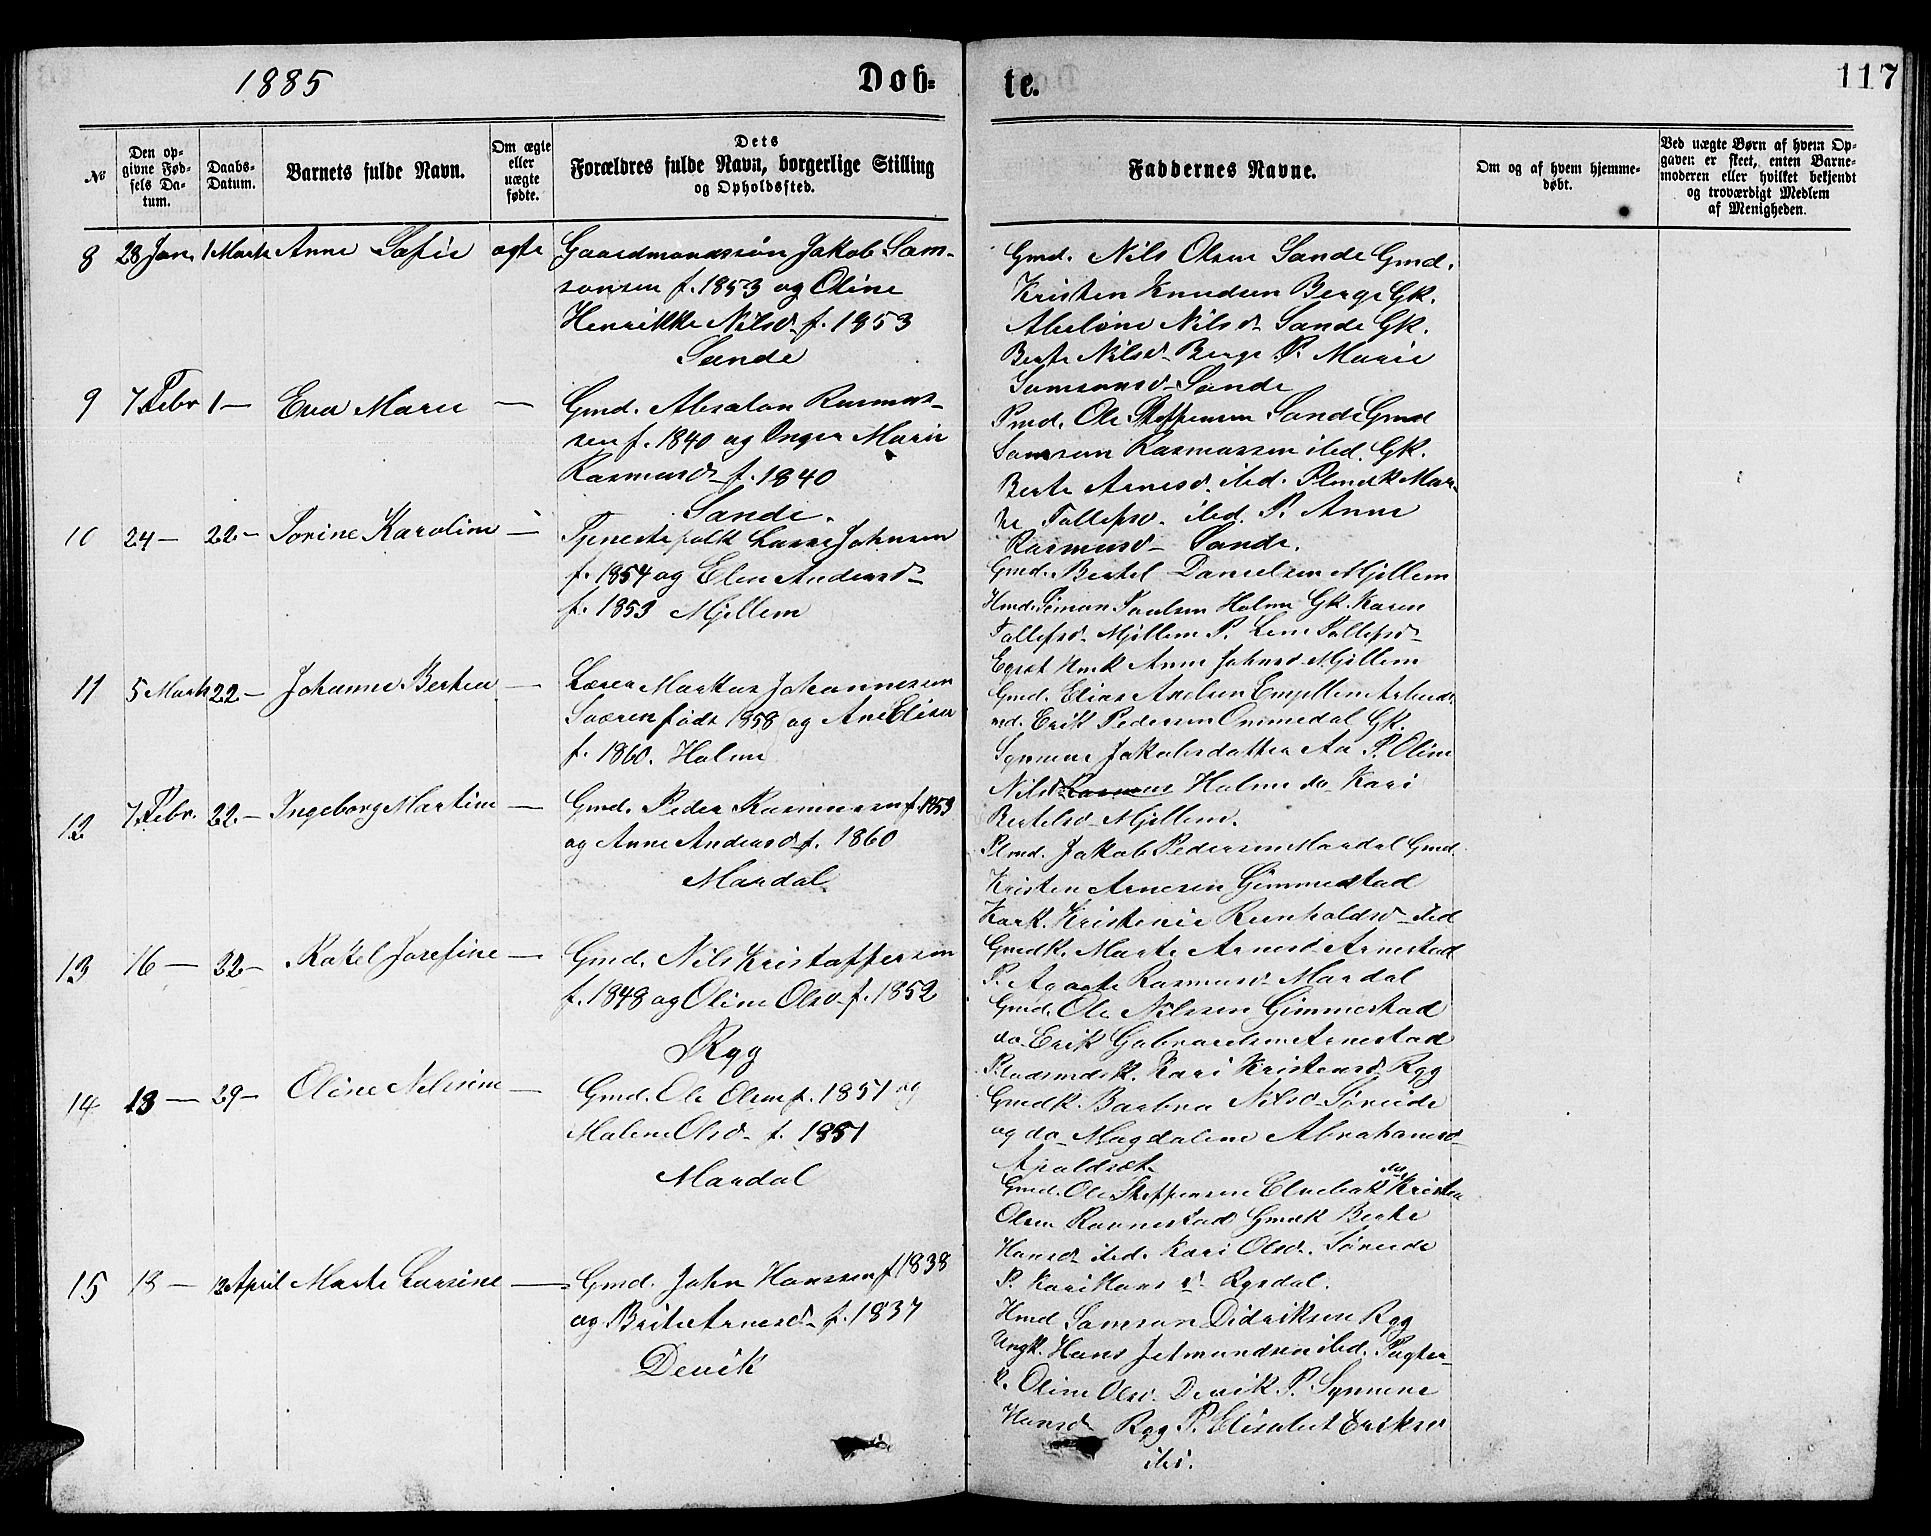 1885
Døb=
te.
117
№
Den op-
givne Fød-
sels Da-
tum.
Daabs-
Datum.
Barnets fulde Navn.
Om ægte
eller
uægte
fødte.
Dets
Forældres fulde Navn, borgerlige Stilling
og Opholdssted.
Faddernes Navne.
Om og af hvem hjemme-
døbt.
Ved uægte Børn af hvem Op-
gaven er skeet, enten Barne-
moderen eller hvilket bekjendt
og troværdigt Medlem
af Menigheden.
8 28 Jan. 1 Marts Anne Sofie ægte
Gaardmandssøn Jakob Sam-
sonsen f. 1853 og Oline
Henrikke Nilsd. f. 1853
Sande
Gmd. Nils Olsen Sande Gmd.
Kristen Knudsen Berge Gk.
Abelone Nilsd. Sande Gk.
Berte Nilsd. Berge P. Marie
Samsonsd. Sande
9 7 Febr 1 — Eva Marie —
Gmd. Absalon Rasmus-
sen f. 1840 og Inger Marie
Rasmusd. f. 1840
Sande.
Pmd. Ole Steffensen Sande Gmd
Samson Rasmussen ibd. Gk.
Berte Arnesd. ibd. Plmdk Mar-
te Tollefsd. ibd. P. Anne
Rasmusd. Sande.
10 24 — 22 — Sorine Karoline —
Tjenestefolk Lasse Johnsen
f. 1854 og Elen Andersd.
f. 1853 Mjellem
Gmd. Bertel Danielsen Mjellem
Hmd. Simon Paulsen Holme Gk. Karen
Tollefsd. Mjellem P. Lene Tollefsd.
Egset Hmk Anne Johnsd. Mjellem
11 5 Marts 22 — Johanne Bertea —
Lærer Markus Johannessen
Sværen født 1858 og Ane Elisa
f. 1860. Holme
Gmd. Elias Andersen Arbeids
md. Erik Pedersen Ommedal Gk.
Synneve Jakobsdatter Aa P. Oline
Nilsd. Holme do Kari
Bertelsd. Mjellem.
12 7 Febr. 22 — Ingeborg Martine —
Gmd. Peder Rasmussen f. 1853
og Anne Andersd. f. 1860
Mardal
Plmd. Jakob Pedersen Mardal Gmd.
Kristen Arnesen Gimmestad
Kark. Kristense Reinholdsd. ibd
Gmdk. Marte Arnesd. Arnestad
P. Agate Rasmusd. Mardal
13 16 — 22 — Rakel Josefine —
Gmd. Nils Kristoffersen
f. 1848 og Oline Olsd. f. 1852
Ryg
Gmd. Ole Nilssen Gimmestad
do. Erik Gabrielsen Arnestad
Pladsmdsk. Kari Kristensd. Ryg
Gmdk. Barbra Nilsd. Søreide
og do. Magdalene Abrahamsd.
Apaldset.
14 18 — 29 — Oline Nilsine —
Gmd. Ole Olsen f. 1851 og
Malene Olsd. f. 1851
Mardal
Gmd. Ole Steffensen do. Kristen
Olsen Ravnestad Gmdk Berte
Hansd. ibd. Kari Olsd. Søreide
P. Kari Hans d. Rysdal.
15 18 — 12 April Marte Larsine —
Gmd. John Hanssen f 1838
og Brite Arnesd. f. 1837
Devik
Hmd Samson Didriksen Ryg
Ungk. Hans Jetmundsen ibd. Pagter-
k. Oline Olsd. Devik P. Synneve
Hansd. Ryg P. Elisabet Eriksd
ibd.